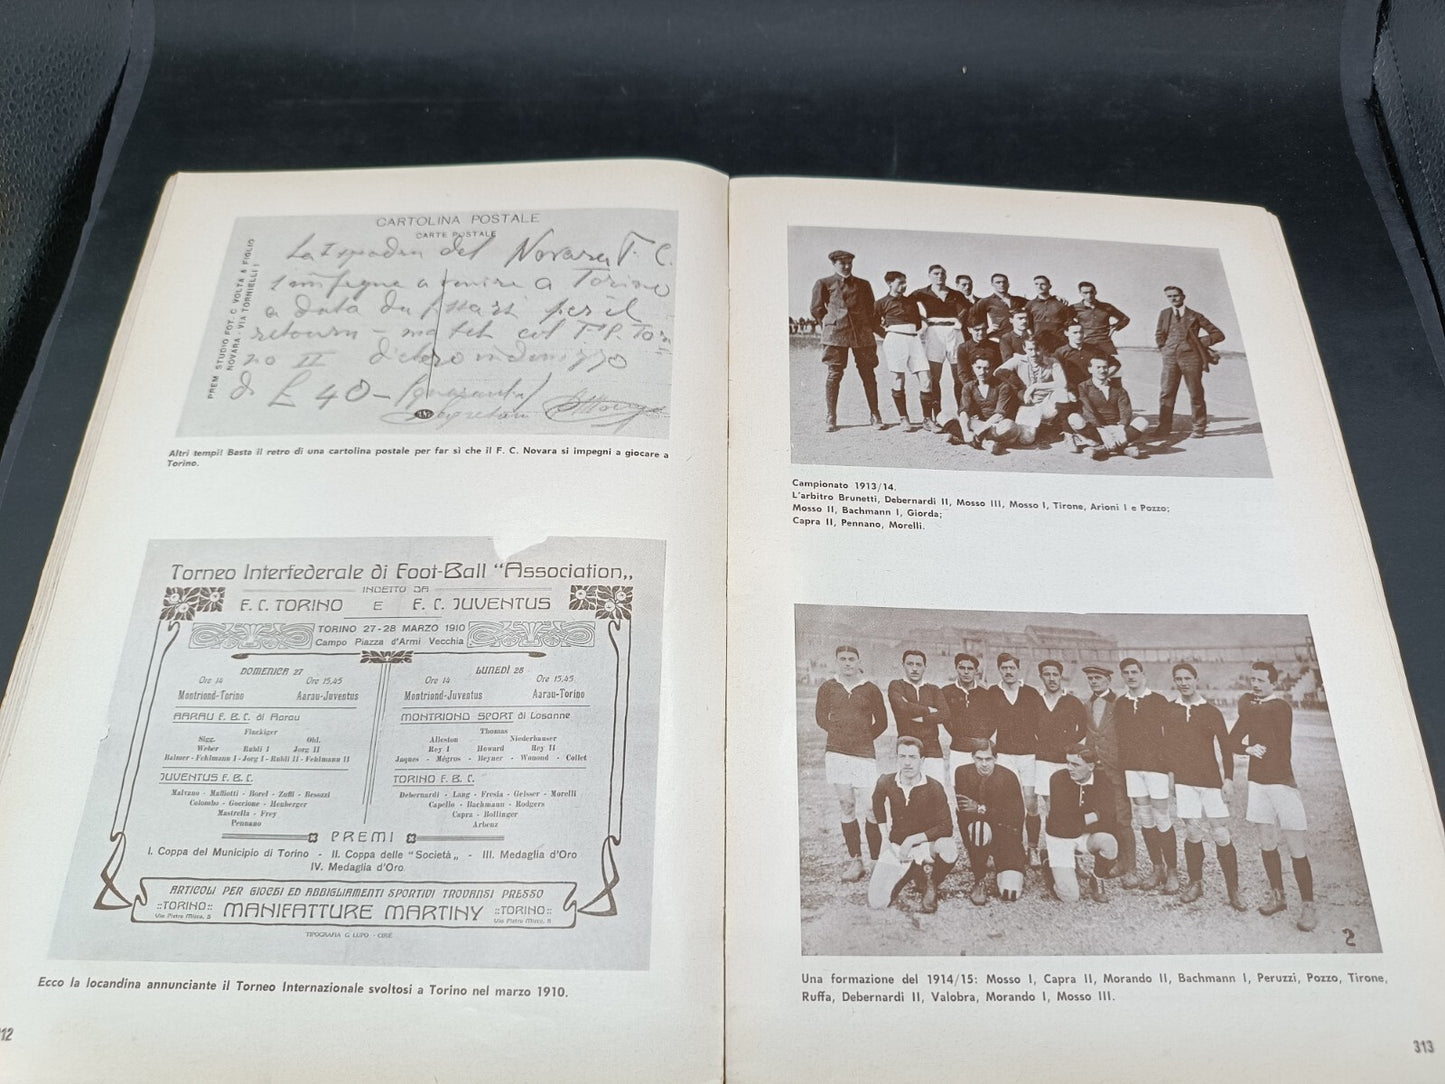 CARTOLINA POSTALE
CARTE POSTALE
PREM STUDIO FOT. C VOLTA & FIGLIO
NOVARA - VIA TORNIELLI 1
La squadra del Novara F. C.
s'impegna a venire a Torino
a data da fissarsi per il
retourn - match col F. C. Tori-
no II dietro indennizzo
di £ 40 -
Altri tempi! Basta il retro di una cartolina postale per far sì che il F. C. Novara si impegni a giocare a
Torino.
Torneo Interfederale di Foot-Ball "Association„
INDETTO DA
F. C. TORINO E F. C. JUVENTUS
TORINO 27-28 MARZO 1910
Campo Piazza d'Armi Vecchia
DOMENICA 27
Ore 14 Ore 15,45
Montriond-Torino Aarau-Juventus
AARAU F. B. C. di Aarau
Fluckiger
Sigg. Old.
Weber Rubli I Jorg II
Balmer - Fehlmann I - Jorg I - Rubli II - Fehlmann II
JUVENTUS F. B. C.
Malvano - Maffiotti - Borel - Zuffi - Besozzi
Colombo - Goccione - Heuberger
Mastrella - Frey
Pennano
LUNEDÌ 28
Ore 14 Ore 15,45
Montriond-Juventus Aarau-Torino
MONTRIOND SPORT di Losanne
Thomas
Alleston Niederhauser
Rey I Howard Rey II
Jaques - Mégroz - Beyner - Wonond - Collet
TORINO F. B. C.
Debernardi - Lang - Fresia - Geisser - Morelli
Capello - Bachmann - Rodgers
Capra - Bollinger
Arbenz
PREMI
I. Coppa del Municipio di Torino - II. Coppa delle "Società„ - III. Medaglia d'Oro
IV. Medaglia d'Oro
ARTICOLI PER GIOCHI ED ABBIGLIAMENTI SPORTIVI TROVANSI PRESSO
::TORINO:: MANIFATTURE MARTINY ::TORINO::
Via Pietro Micca, 5 Via Pietro Micca, 5
TIPOGRAFIA G. LUPO - CIRIÉ
Ecco la locandina annunciante il Torneo Internazionale svoltosi a Torino nel marzo 1910.
12
Campionato 1913/14.
L'arbitro Brunetti, Debernardi II, Mosso III, Mosso I, Tirone, Arioni I e Pozzo;
Mosso II, Bachmann I, Giorda;
Capra II, Pennano, Morelli.
2
Una formazione del 1914/15: Mosso I, Capra II, Morando II, Bachmann I, Peruzzi, Pozzo, Tirone,
Ruffa, Debernardi II, Valobra, Morando I, Mosso III.
313